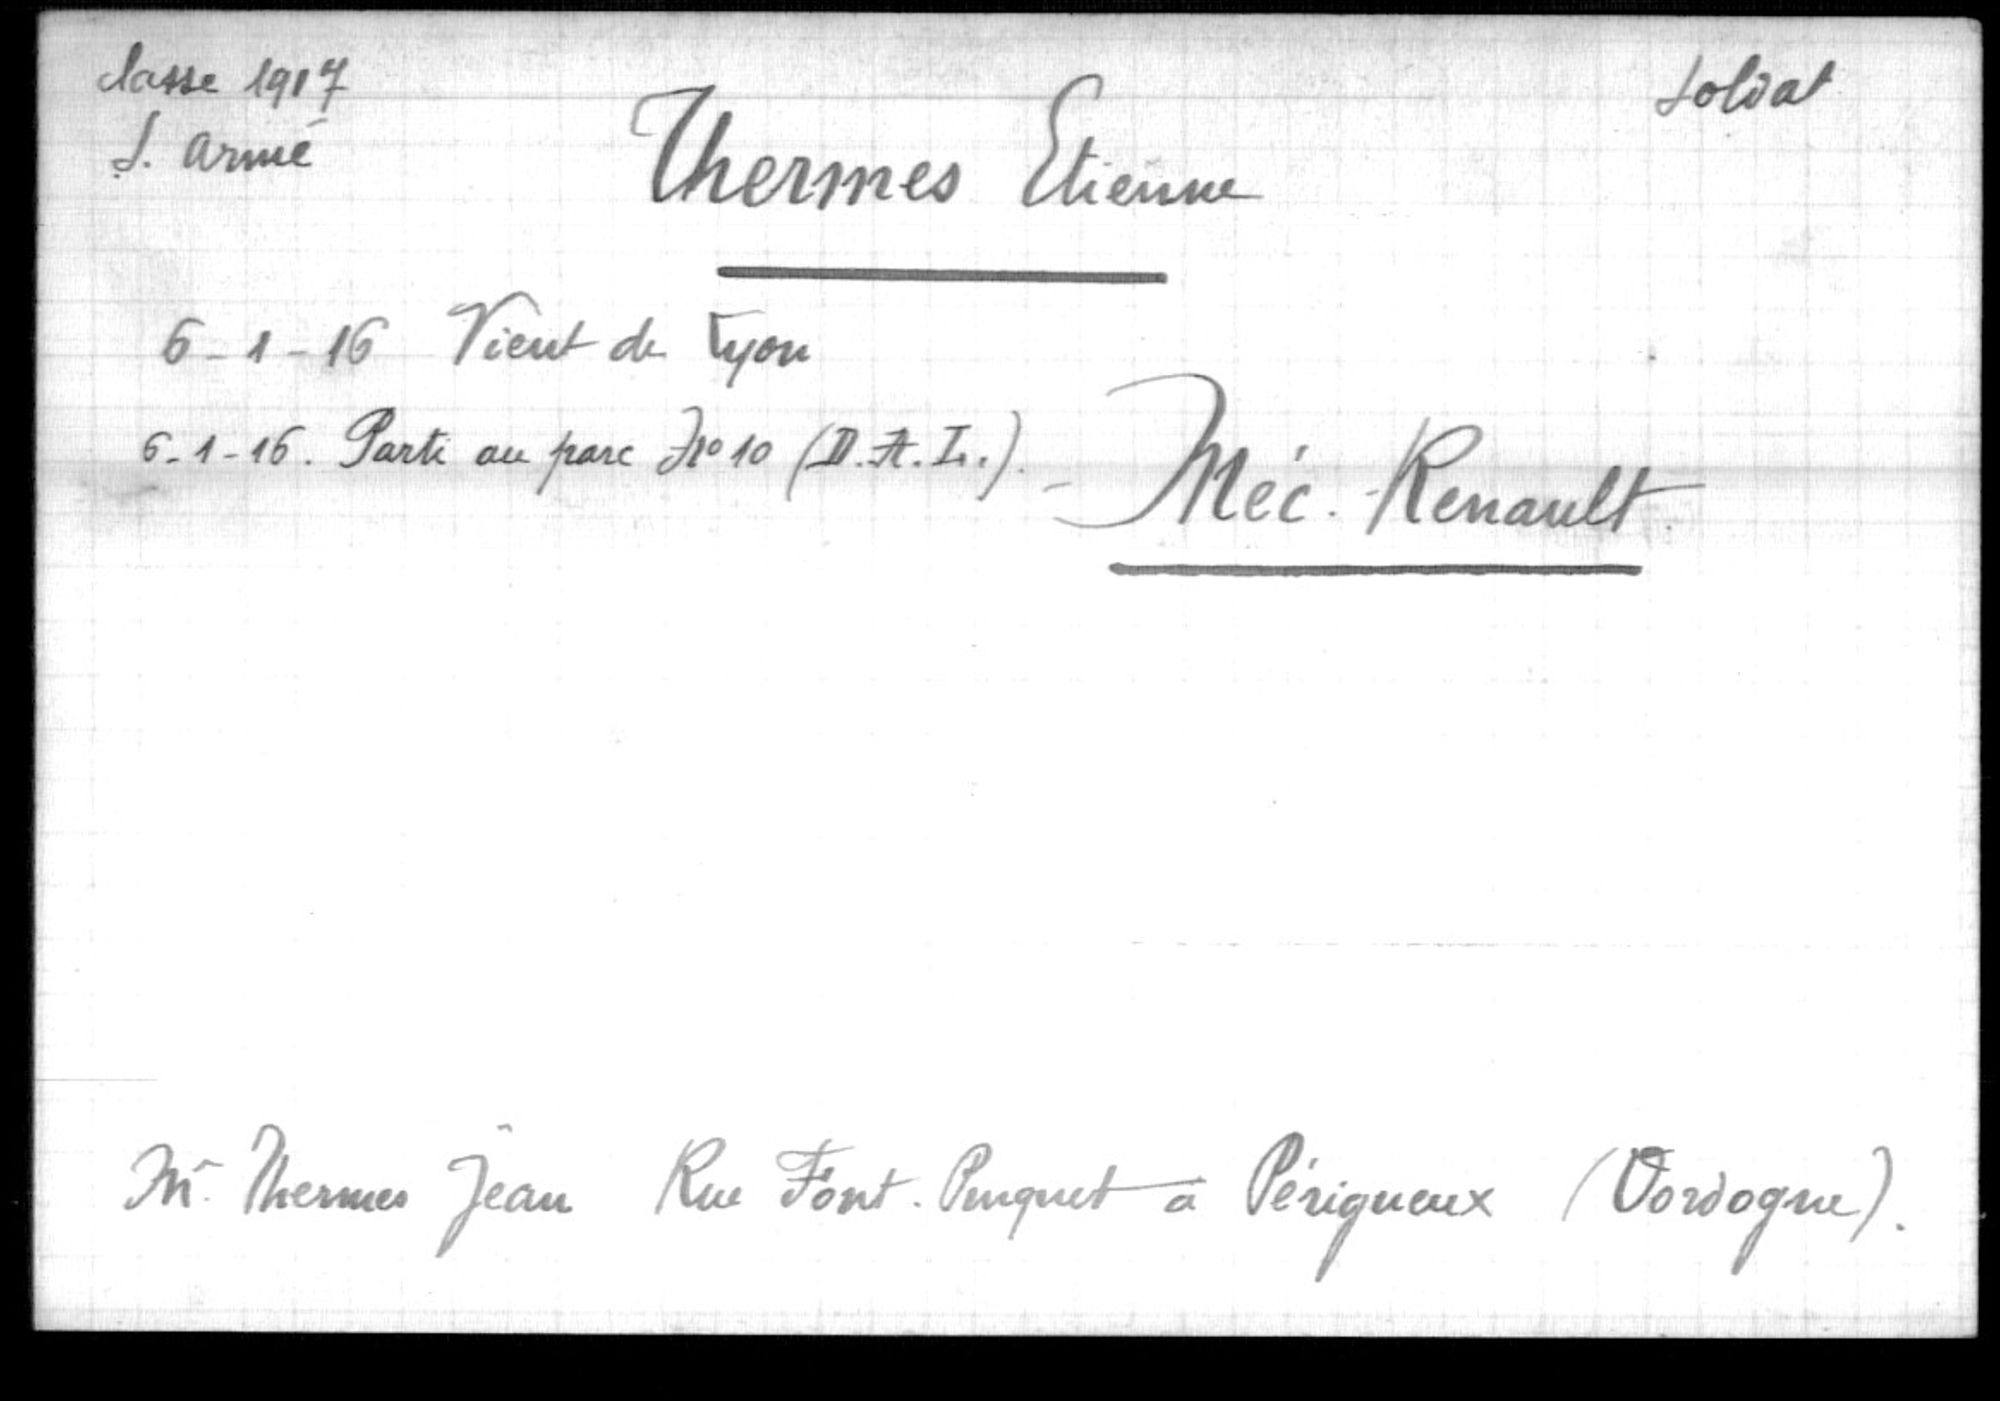 classe 1917
S. Armé
Soldat
Thermes Etienne
6-1-16 Vient de Lyon
6-1-16. Parti au parc No 10 (D.A.L.). - Méc. Renault.
Mr. Thermes Jean Rue Font-Pinquet à Périgueux (Dordogne).